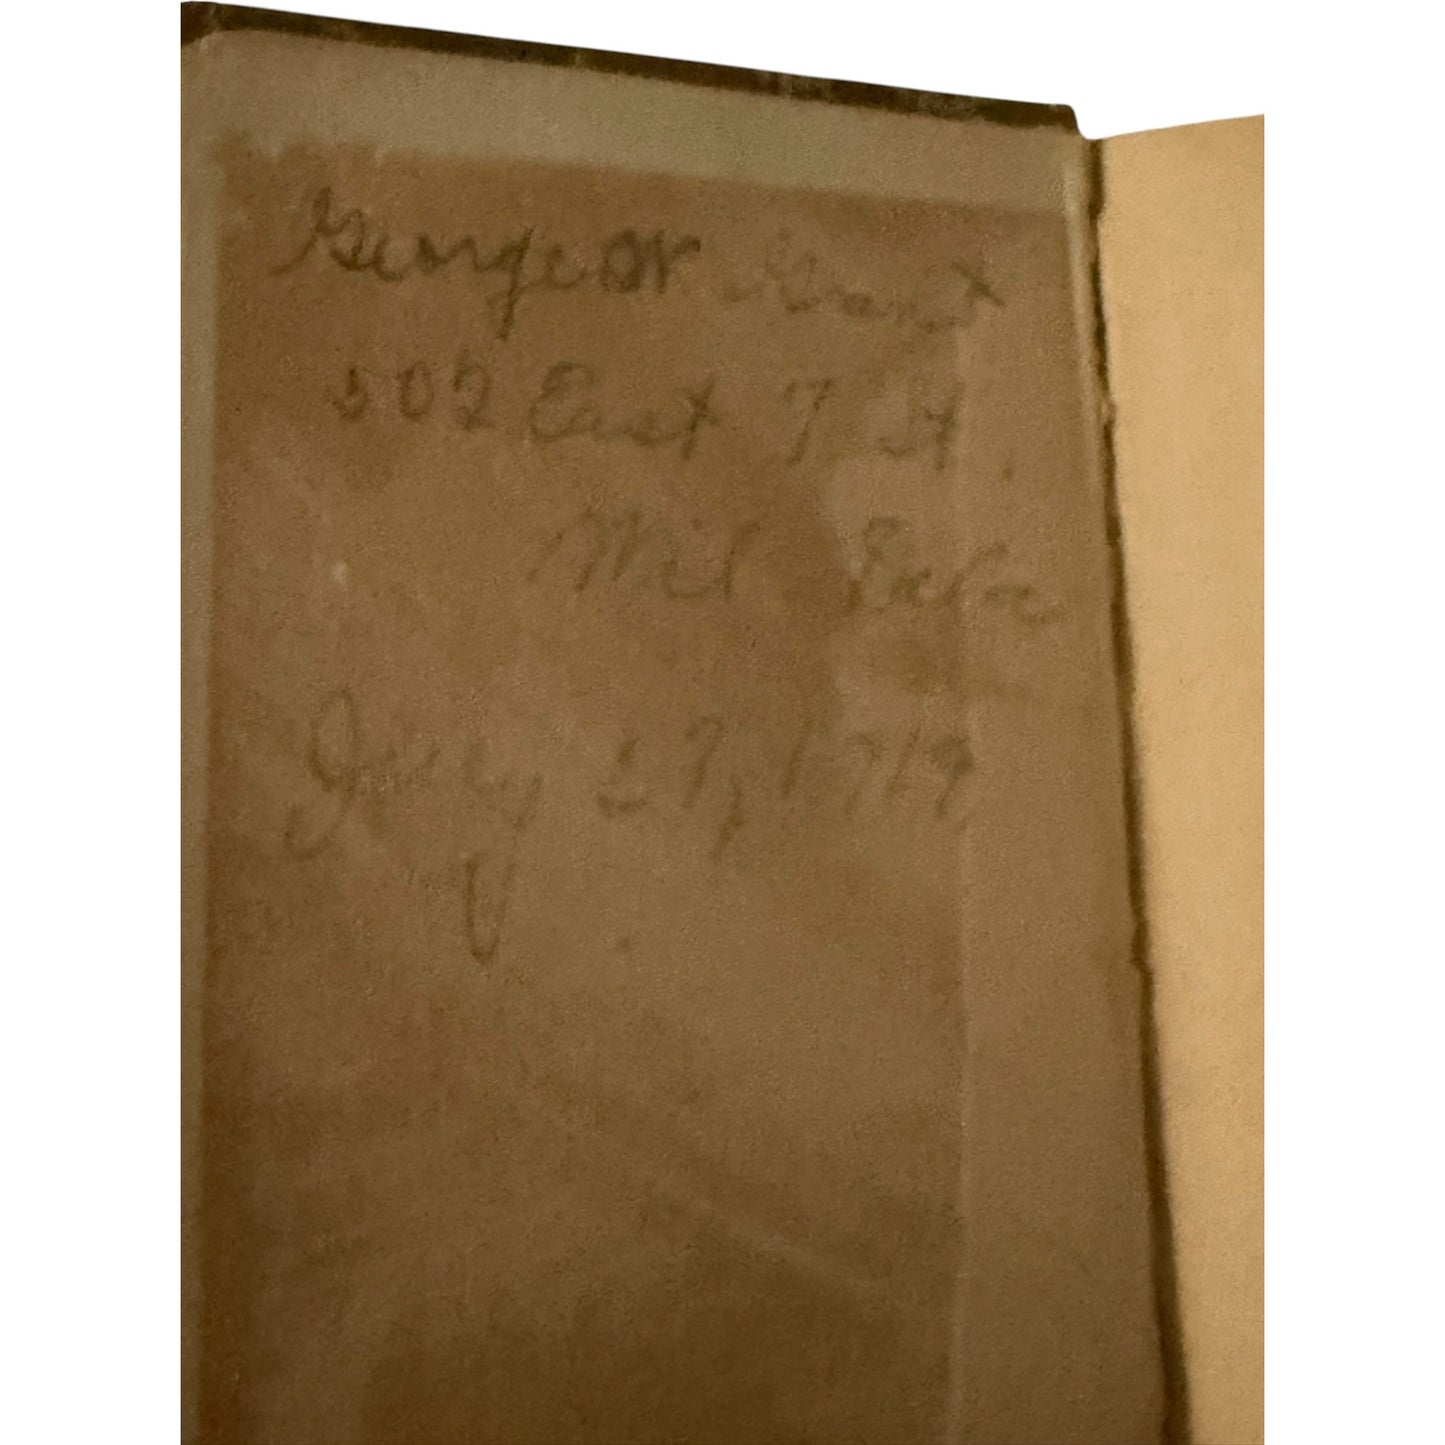 George W Grant
502 East 7 St.
Wil Dela
July 27, 1919